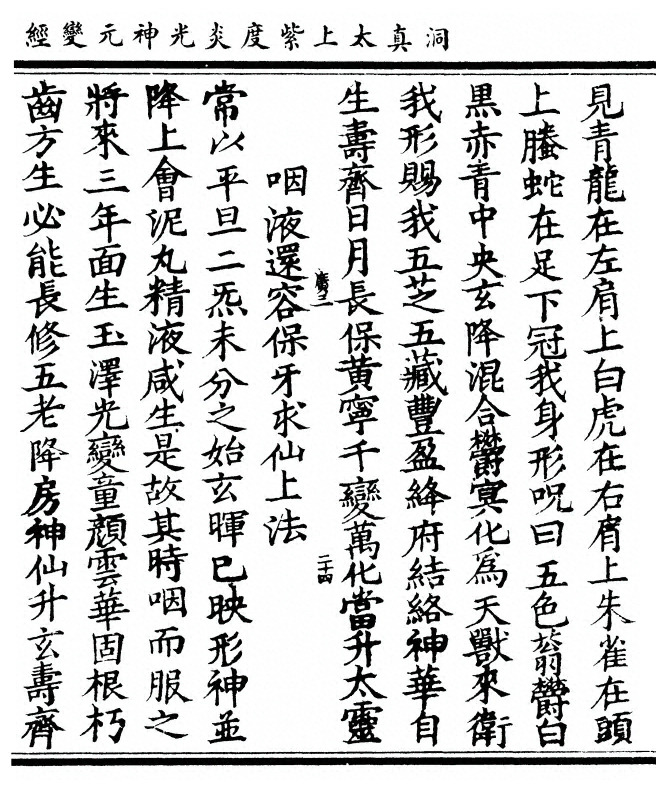 洞真太上紫度炎光神元變經
見青龍在左肩上白虎在右肩上朱雀在頭
上螣蛇在足下冠我身形呪曰五色蓊欝白
黑赤青中央玄降混合欝冥化爲天獸來衛
我形賜我五芝五藏豐盈絳府結絡神華自
生壽齊日月長保黄寧千變萬化當升太靈
廣二
二十四
咽液還容保牙求仙上法
常以平旦二炁未分之始玄暉已映形神並
降上會泥丸精液咸生是故其時咽而服之
將來三年面生玉澤光變童顔雲華固根朽
齒方生必能長修五老降房神仙升玄壽齊